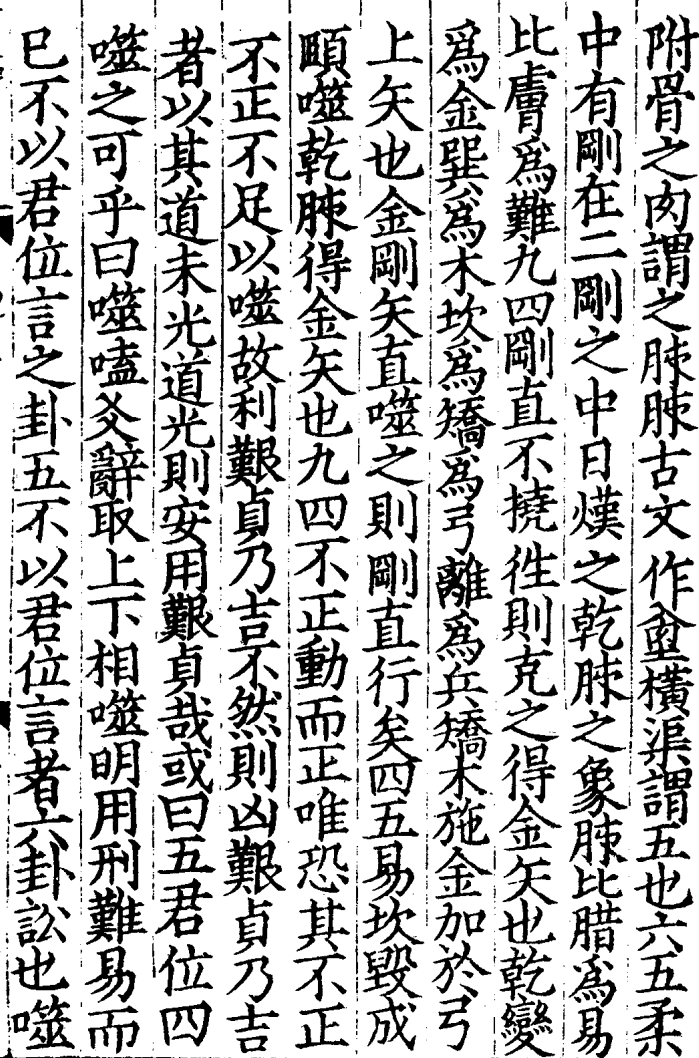 附骨之肉謂之胏胏古文作𠈇橫渠謂五也六五柔
中有剛在二剛之中日熯之乾胏之象胏比腊爲易
比膚爲難九四剛直不撓徃則克之得金矢也乾變
爲金巽爲木坎爲矯爲弓離爲兵矯木施金加於弓
上矢也金剛矢直噬之則剛直行矣四五易坎毀成
頤噬乾胏得金矢也九四不正動而正唯恐其不正
不正不足以噬故利艱貞乃吉不然則凶艱貞乃吉
者以其道未光道光則安用艱貞哉或曰五君位四
噬之可乎曰噬嗑爻辭取上下相噬明用刑難易而
巳不以君位言之卦五不以君位言者六卦訟也噬